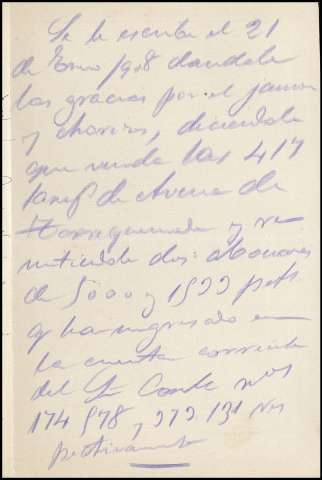 Se le escribe el 21
de Enro 1918 dandole
las gracias por el jamon
y chorizo, diciendole
que venda las 417
faneg de Avena de
Torrequemada y re
mitiendole dos abonares
de 5000 y 1533 pets
q ha ingresado en
la cuenta corriente
del Sr Conde nos
174 578 y 373 131 res
pectivamente